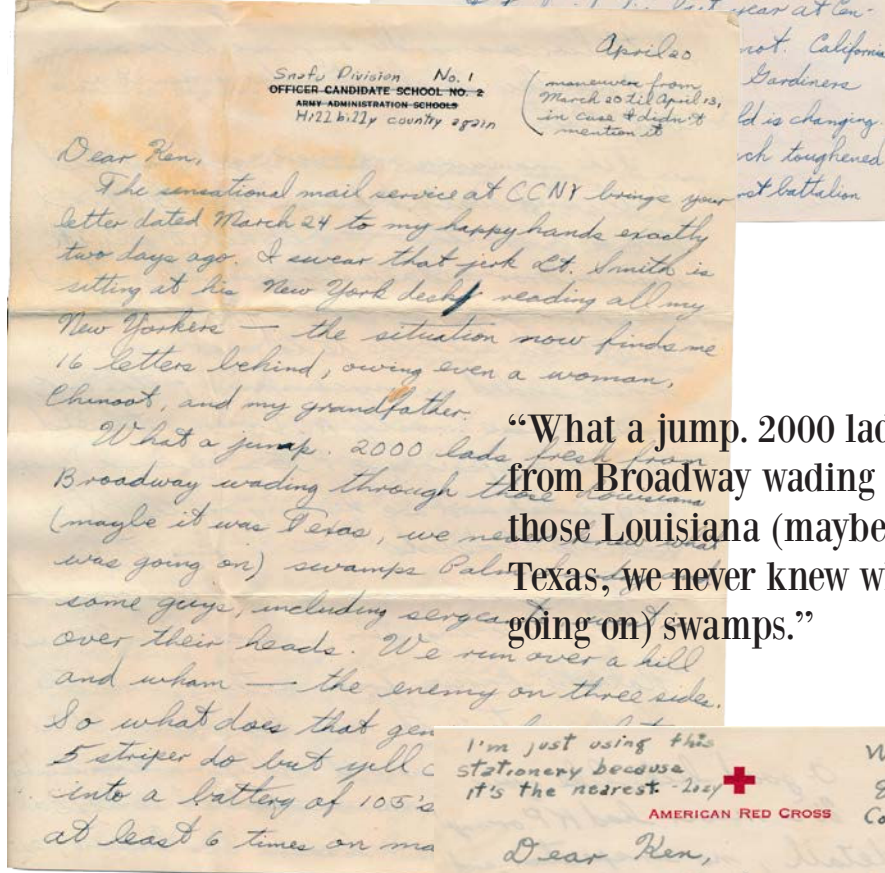 year at Cen-
not. California
Gardiners
ld is changing.
ch toughened
st battalion
April 20
Snafu Division No. 1
OFFICER CANDIDATE SCHOOL NO. 2
ARMY ADMINISTRATION SCHOOLS
Hillbilly country again
(maneuvers from
March 20 til April 13,
in case I didn't
mention it
Dear Ken,
The sensational mail service at CCNY brings your
letter dated March 24 to my happy hands exactly
two days ago. I swear that jerk Lt. Smith is
sitting at his New York desk reading all my
New Yorkers — the situation now finds me
16 letters behind, owing even a woman,
and my grandfather.
What a jump. 2000 lads fresh from
Broadway wading through those Louisiana
(maybe it was Texas, we never knew what
was going on) swamps
some guys, including
over their heads. We run over a hill
and wham — the enemy on three sides.
So what does that gen
5 striper do but yell c
into a battery of 105's
at least 6 times on ma
“What a jump. 2000 lad
from Broadway wading
those Louisiana (maybe
Texas, we never knew w
going on) swamps.”
I'm just using this
stationery because
it's the nearest.
AMERICAN RED CROSS
Co
Dear Ken,